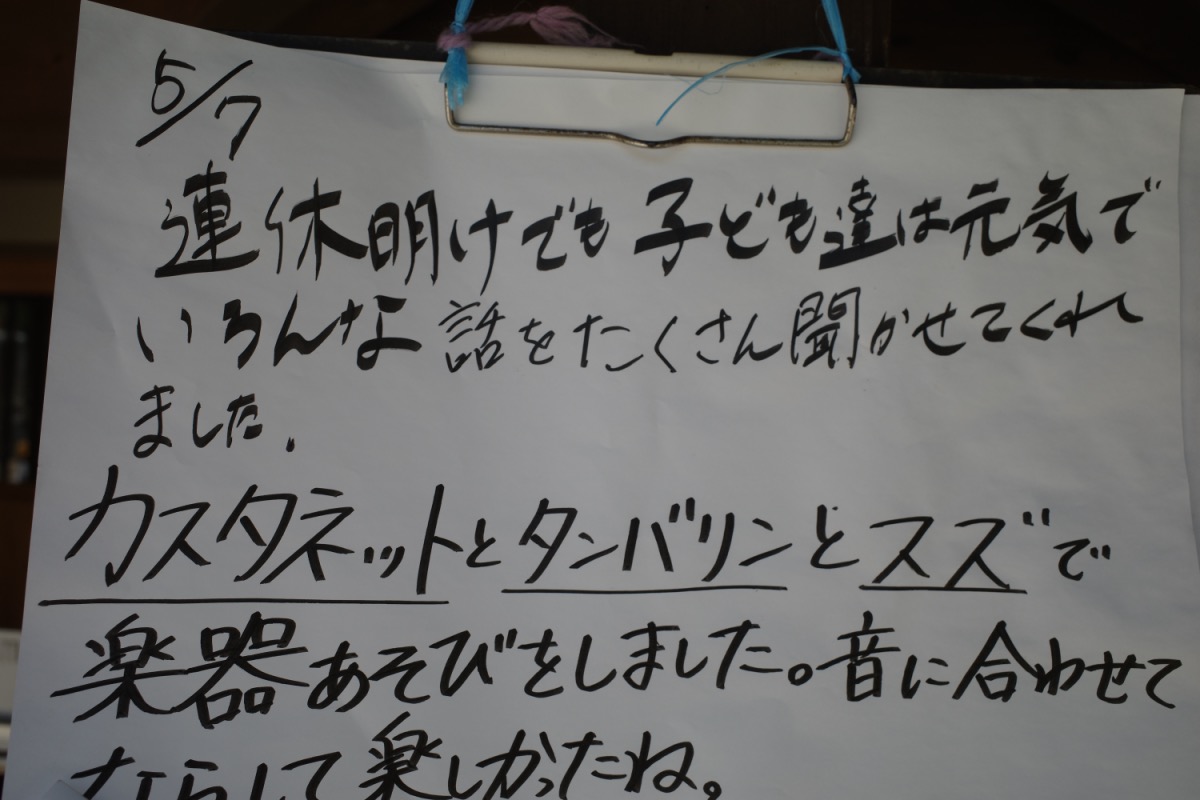 5/7
連休明けでも子ども達は元気で
いろんな話をたくさん聞かせてくれ
ました.
カスタネットとタンバリンとスズで
楽器あそびをしました。音に合わせて
ならして楽しかったね。